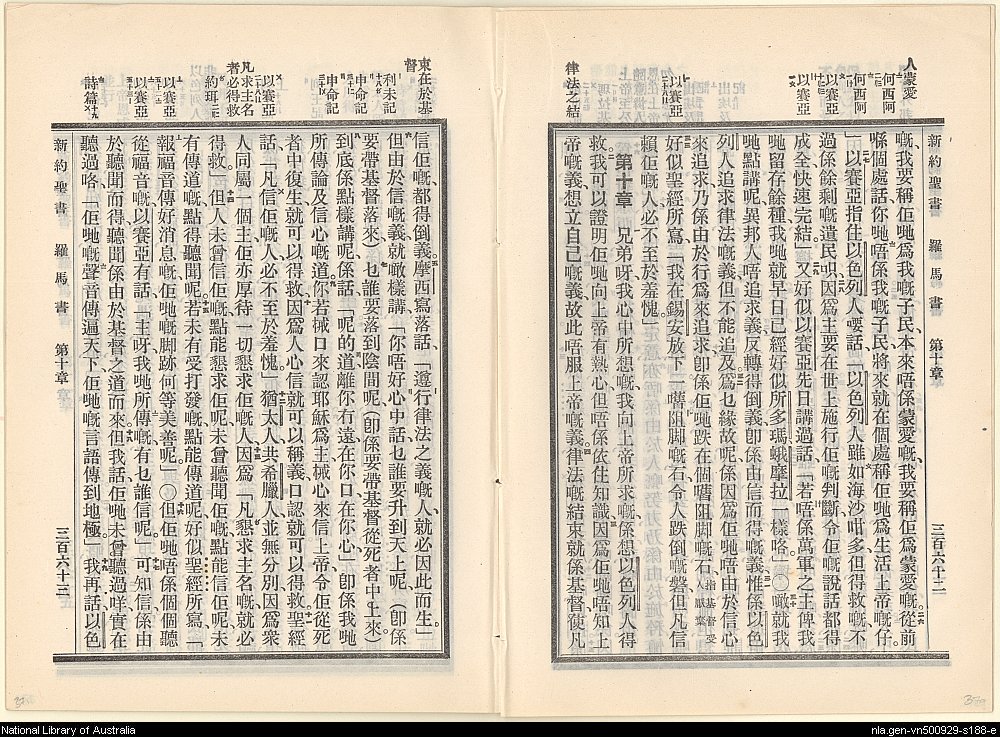 人蒙愛
何西阿
何西阿
以賽亞
以賽亞
以賽亞
律法之結
新約聖書 羅馬書 第十章 三百六十二
嘅、我要稱佢爲我嘅子民、本來唔係蒙愛嘅、我要稱佢爲蒙愛嘅。從前
喺個處話、你哋唔係我嘅子民、將來就在個處稱佢哋爲生活上帝嘅仔。
」以賽亞指住以色列人嗌話、「以色列人雖如海沙咁多、但得救嘅、不
過係餘剩嘅遺民呮、因爲主要在世上施行佢嘅判斷、令佢嘅說話都得
成全、快速完結」又好似以賽亞先日講過話、「若唔係萬軍之主俾我
哋留存餘種、我哋就早日已經好似所多瑪蛾摩拉一樣咯」〇噉就我
哋點講呢、異邦人唔追求義、反轉得倒義、卽係由信而得嘅義、惟係以色
列人追求律法嘅義、但不能追及、爲乜緣故呢、係因爲佢哋唔由於信心
來追求、乃係由於行爲來追求、卽係佢哋跌在個嚿阻脚嘅石、指基督受人厭棄
好似聖經所寫、「我在錫安放下一嚿阻脚嘅石、令人跌倒嘅磐、但凡信
賴佢嘅人、必不至於羞愧」
第十章 兄弟呀、我心中所想嘅、我向上帝所求嘅、係想以色列人得
救、我可以證明佢哋向上帝有熱心、但唔係依住知識、因爲佢哋唔知上
帝嘅義、想立自己嘅義、故此唔服上帝嘅義、律法嘅結束就係基督、使凡
東在於基督
利未記
申命記
申命記
以賽亞
凡求主名者必得救
約珥
以賽亞
以賽亞
詩篇
信佢嘅、都得倒義、摩西寫落話、「遵行律法之義嘅人、就必因此而生」
但由於信嘅義、就噉樣講、「你唔好心中話、乜誰要升到天上呢、(卽係
要帶基督落來)乜誰要落到陰間呢、(卽係要帶基督從死者中上來)
到底係點樣講呢、係話、「呢的道離你冇遠、在你口、在你心」卽係我哋
所傳論及信心嘅道、你若掝口來認耶穌爲主、掝心來信上帝令佢從死
者中復生、就可以得救、因爲人心信就可以稱義、口認就可以得救、聖經
話、「凡信佢嘅人、必不至於羞愧」猶太人共希臘人、並無分別、因爲衆
人同屬一個主、佢亦厚待一切懇求佢嘅人、因爲「凡懇求主名嘅、就必
得救。」但人未曾信佢嘅、點能懇求佢呢、未曾聽聞佢嘅、點能信佢呢、未
有傳道嘅、點得聽聞呢、若未有受打發嘅、點能傳道呢、好似聖經所寫、「
報福音傳好消息嘅、佢哋嘅脚跡何等美善呢」〇但佢哋唔係個個聽
從福音嘅、以賽亞有話、「主呀、我哋所傳嘅有乜誰信呢」可知信係由
於聽聞而得、聽聞係由於基督之道而來、但我話、佢哋未曾聽過咩、實在
聽過咯、「佢哋嘅聲音傳遍天下、佢哋嘅言語傳到地極。」我再話、以色
新約聖書 羅馬書 第十章 三百六十三
National Library of Australia
nla.gen-vn500929-s188-e